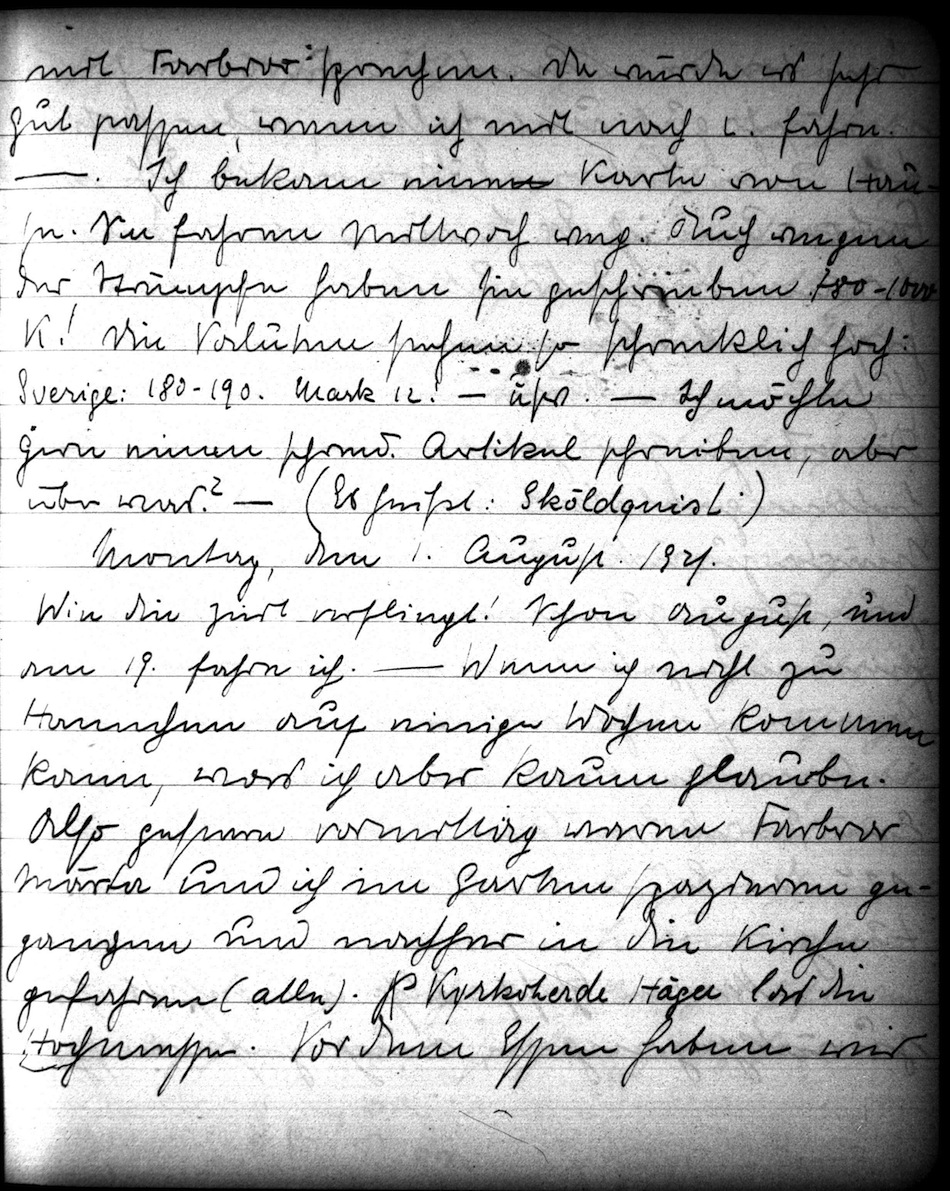 mit Farbror sprechen. Da würde es sehr
gut passen, wenn ich mit nach L. fahre.
—. Ich bekam eine Karte von Hau-
se. Sie fahren Mittwoch weg. Auch wegen
der Strümpfe haben sie geschrieben 780-1000
K! Die Valuten stehen so schrecklich hoch:
Sverige: 180-190. Mark 12. — usw. — Ich möchte
gern einen schwed. Artikel schreiben, aber
über was? — (Es heisst: Sköldquist)
Montag, den 1. August. 1921.
Wie die Zeit verfliegt! Schon August, und
am 19. fahre ich. — Wenn ich nicht zu
Hannchen auf einige Wochen kommen
kann, was ich aber kaum glaube.
Also gestern vormittag waren Farbror
Märta und ich im Garten spazieren ge-
gangen und nachher in die Kirche
gefahren (alle). Kyrkoherde Häger las die
Hochmesse. Vor dem Essen haben wir